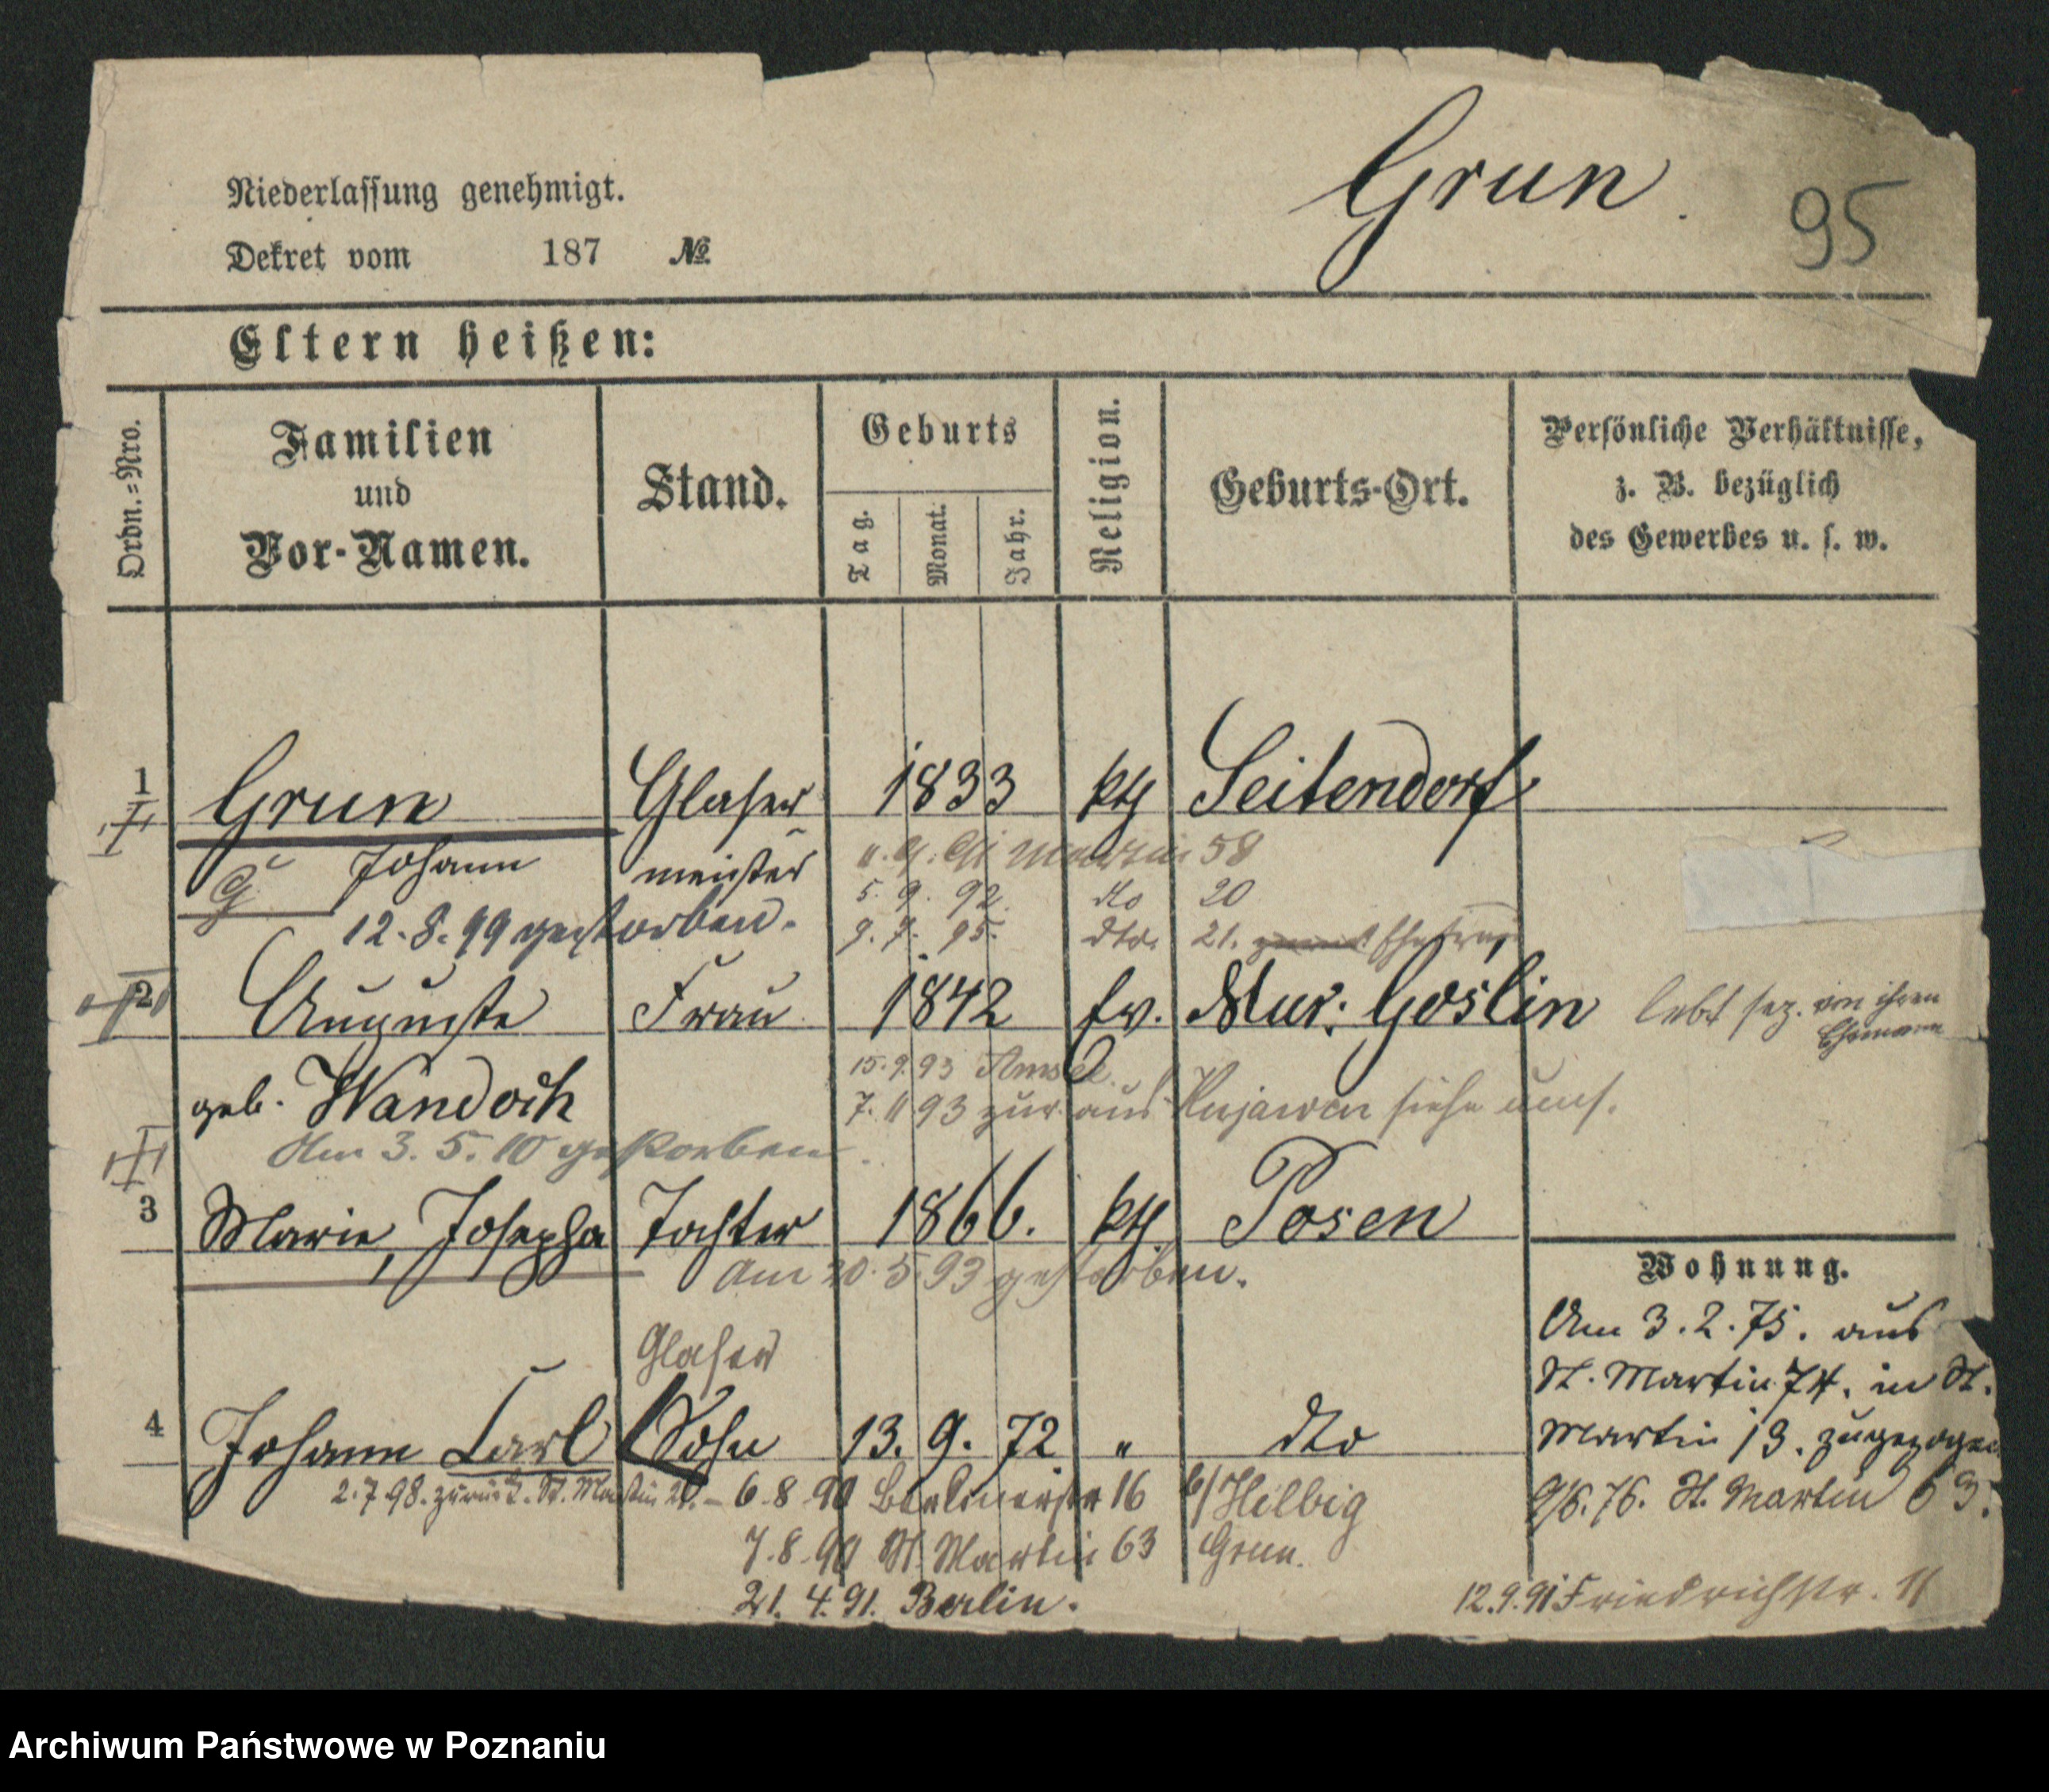 Grun.
95
Niederlassung genehmigt.
Dekret vom 187 №
Eltern heißen:
Ordn.=Nro.
Familien
und
Vor-Namen.
Stand.
Geburts
Tag.
Monat.
Jahr.
Religion.
Geburts-Ort.
Persönliche Verhältnisse,
z. B. bezüglich
des Gewerbes u. s. w.
1 Grun Glaser 1833 kth Seitendorf
Johann meister Martin 58
5. 9. 92. dto 20
12.8.99 gestorben. 9. 7. 95. dto. 21.
2 Auguste Frau 1842 ev. Mur: Goslin lebt sep. von ihren
Ehemann
15.9.93
geb. Wandoch 7. 11 93 zur. aus Kujawien siehe
Am 3. 5. 10 gestorben.
3 Marie, Josepha Tochter 1866. kth. Posen
Am 20.5.93 gestorben.
Wohnung.
Am 3.2.75. aus
Glaser
St. Martin 74. in St.
4 Johann Carl Sohn 13. 9. 72 " dto
Martin 13. zugezogen
2.7.98. zurück. St. Martin 21. – 6.8.90 Berlinerstr 16 b/Hilbig
9/6. 76. St. Martin 63.
7.8.90 St. Martin 63 Grun.
21. 4. 91. Berlin.
12.9.91 Friedrichstr. 11
Archiwum Państwowe w Poznaniu